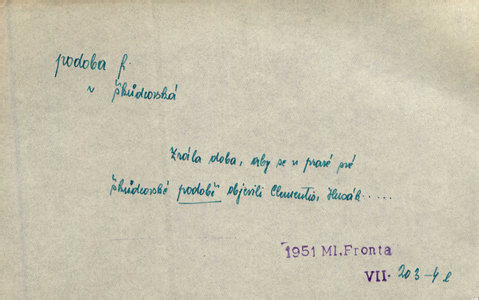 podoba f.
v škůdcovská
Zrála doba, aby se v pravé své
škůdcovské podobě objevili Clementis, Husák.....
1951 Ml. Fronta
VII. 203-4